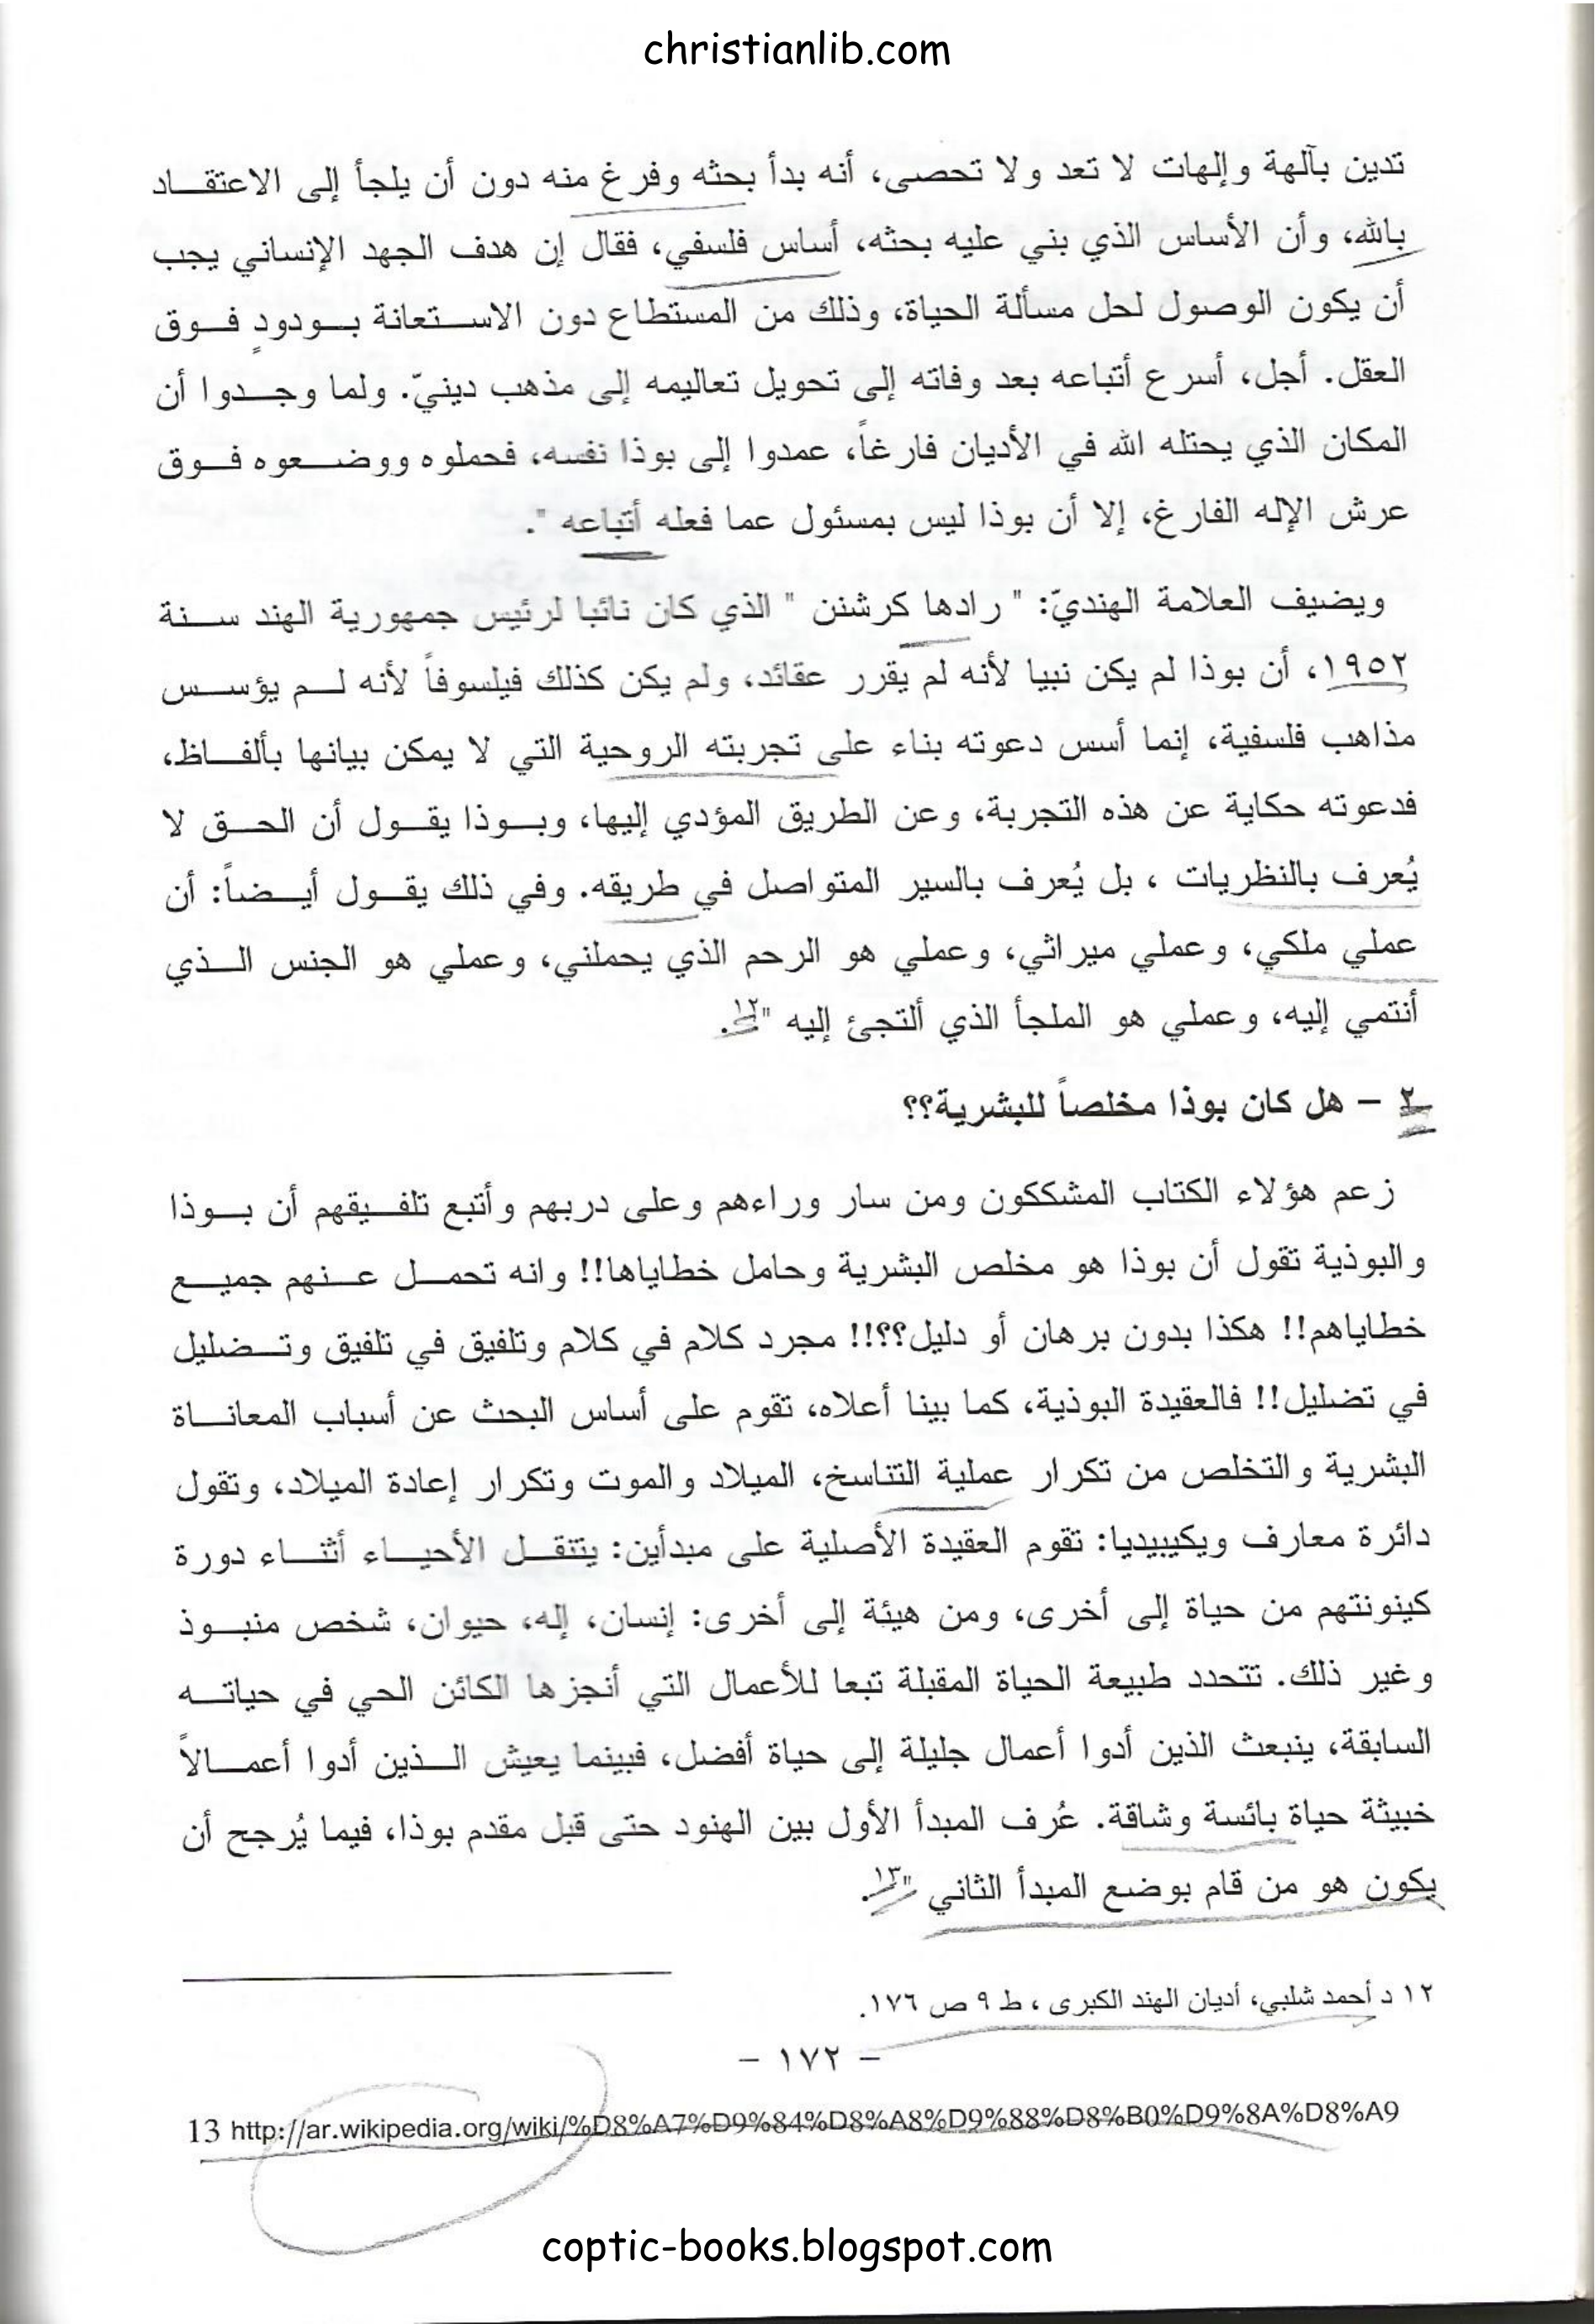 christianlib.com
تدين بآلهة وإلهات لا تعد ولا تحصى، أنه بدأ بحثه وفرغ منه دون أن يلجأ إلى الاعتقاد
بالله، وأن الأساس الذي بني عليه بحثه، أساس فلسفي، فقال إن هدف الجهد الإنساني يجب
أن يكون الوصول لحل مسألة الحياة، وذلك من المستطاع دون الاستعانة بودودٍ فوق
العقل. أجل، أسرع أتباعه بعد وفاته إلى تحويل تعاليمه إلى مذهب دينيّ. ولما وجدوا أن
المكان الذي يحتله الله في الأديان فارغاً، عمدوا إلى بوذا نفسه، فحملوه ووضعوه فوق
عرش الإله الفارغ، إلا أن بوذا ليس بمسئول عما فعله أتباعه ".
ويضيف العلامة الهنديّ: " رادها كرشنن " الذي كان نائبا لرئيس جمهورية الهند سنة
١٩٥٢، أن بوذا لم يكن نبيا لأنه لم يقرر عقائد، ولم يكن كذلك فيلسوفاً لأنه لم يؤسس
مذاهب فلسفية، إنما أسس دعوته بناء على تجربته الروحية التي لا يمكن بيانها بألفاظ،
فدعوته حكاية عن هذه التجربة، وعن الطريق المؤدي إليها، وبوذا يقول أن الحق لا
يُعرف بالنظريات ، بل يُعرف بالسير المتواصل في طريقه. وفي ذلك يقول أيضاً: أن
عملي ملكي، وعملي ميراثي، وعملي هو الرحم الذي يحملني، وعملي هو الجنس الذي
أنتمي إليه، وعملي هو الملجأ الذي ألتجئ إليه "١٢.
٢ – هل كان بوذا مخلصاً للبشرية؟؟
زعم هؤلاء الكتاب المشككون ومن سار وراءهم وعلى دربهم وأتبع تلفيقهم أن بوذا
والبوذية تقول أن بوذا هو مخلص البشرية وحامل خطاياها!! وانه تحمل عنهم جميع
خطاياهم!! هكذا بدون برهان أو دليل؟؟!! مجرد كلام في كلام وتلفيق في تلفيق وتضليل
في تضليل!! فالعقيدة البوذية، كما بينا أعلاه، تقوم على أساس البحث عن أسباب المعاناة
البشرية والتخلص من تكرار عملية التناسخ، الميلاد والموت وتكرار إعادة الميلاد، وتقول
دائرة معارف ويكيبيديا: تقوم العقيدة الأصلية على مبدأين: يتنقل الأحياء أثناء دورة
كينونتهم من حياة إلى أخرى، ومن هيئة إلى أخرى: إنسان، إله، حيوان، شخص منبوذ
وغير ذلك. تتحدد طبيعة الحياة المقبلة تبعا للأعمال التي أنجزها الكائن الحي في حياته
السابقة، ينبعث الذين أدوا أعمال جليلة إلى حياة أفضل، فبينما يعيش الذين أدوا أعمالاً
خبيثة حياة بائسة وشاقة. عُرف المبدأ الأول بين الهنود حتى قبل مقدم بوذا، فيما يُرجح أن
يكون هو من قام بوضع المبدأ الثاني "١٣.
١٢ د أحمد شلبي، أديان الهند الكبرى ، ط ٩ ص ١٧٦.
– ١٧٢ –
13 http://ar.wikipedia.org/wiki/%D8%A7%D9%84%D8%A8%D9%88%D8%B0%D9%8A%D8%A9
coptic-books.blogspot.com